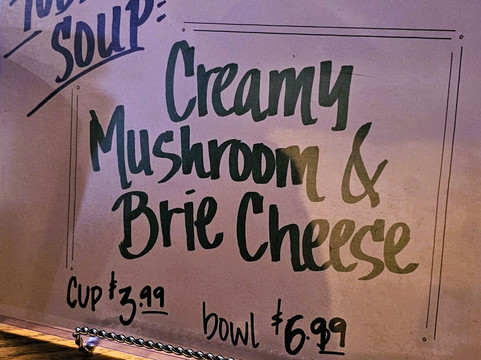 SOUP:
Creamy
Mushroom &
Brie Cheese
cup $3.99
bowl $6.99